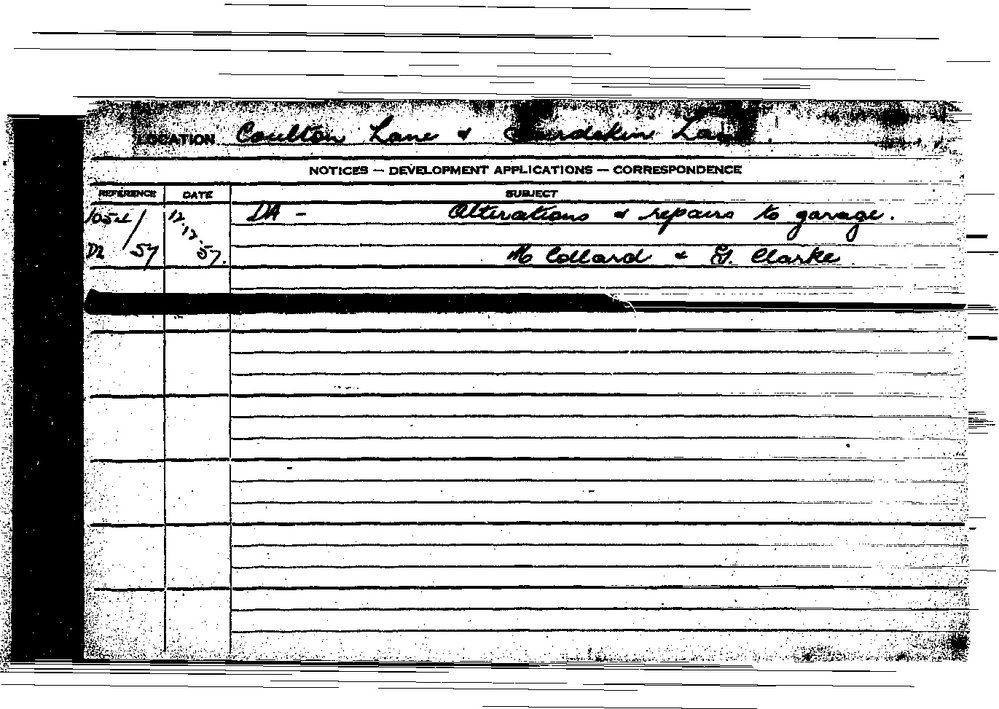 LOCATION Coulton Lane & Lane.
NOTICES — DEVELOPMENT APPLICATIONS — CORRESPONDENCE
REFERENCE DATE SUBJECT
/ 12 DA - Alterations & repairs to garage.
57 57. M Collard & G. Clarke